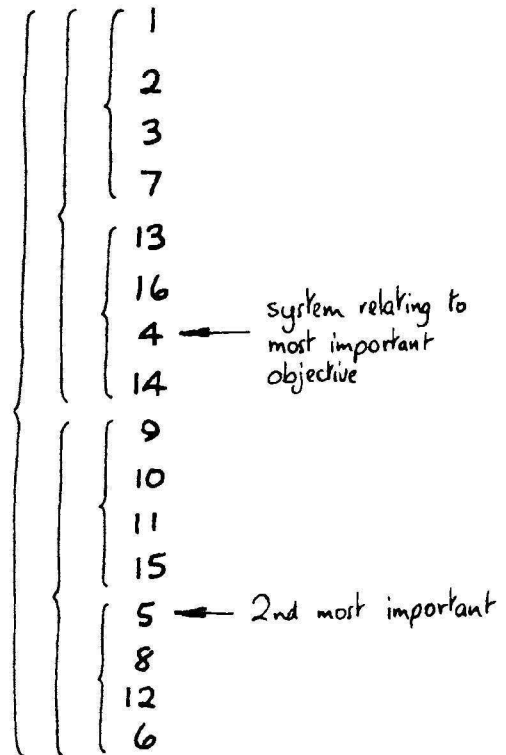 1
2
3
7
13
16
4
system relating to
most important
objective
14
9
10
11
15
5
2nd most important
8
12
6